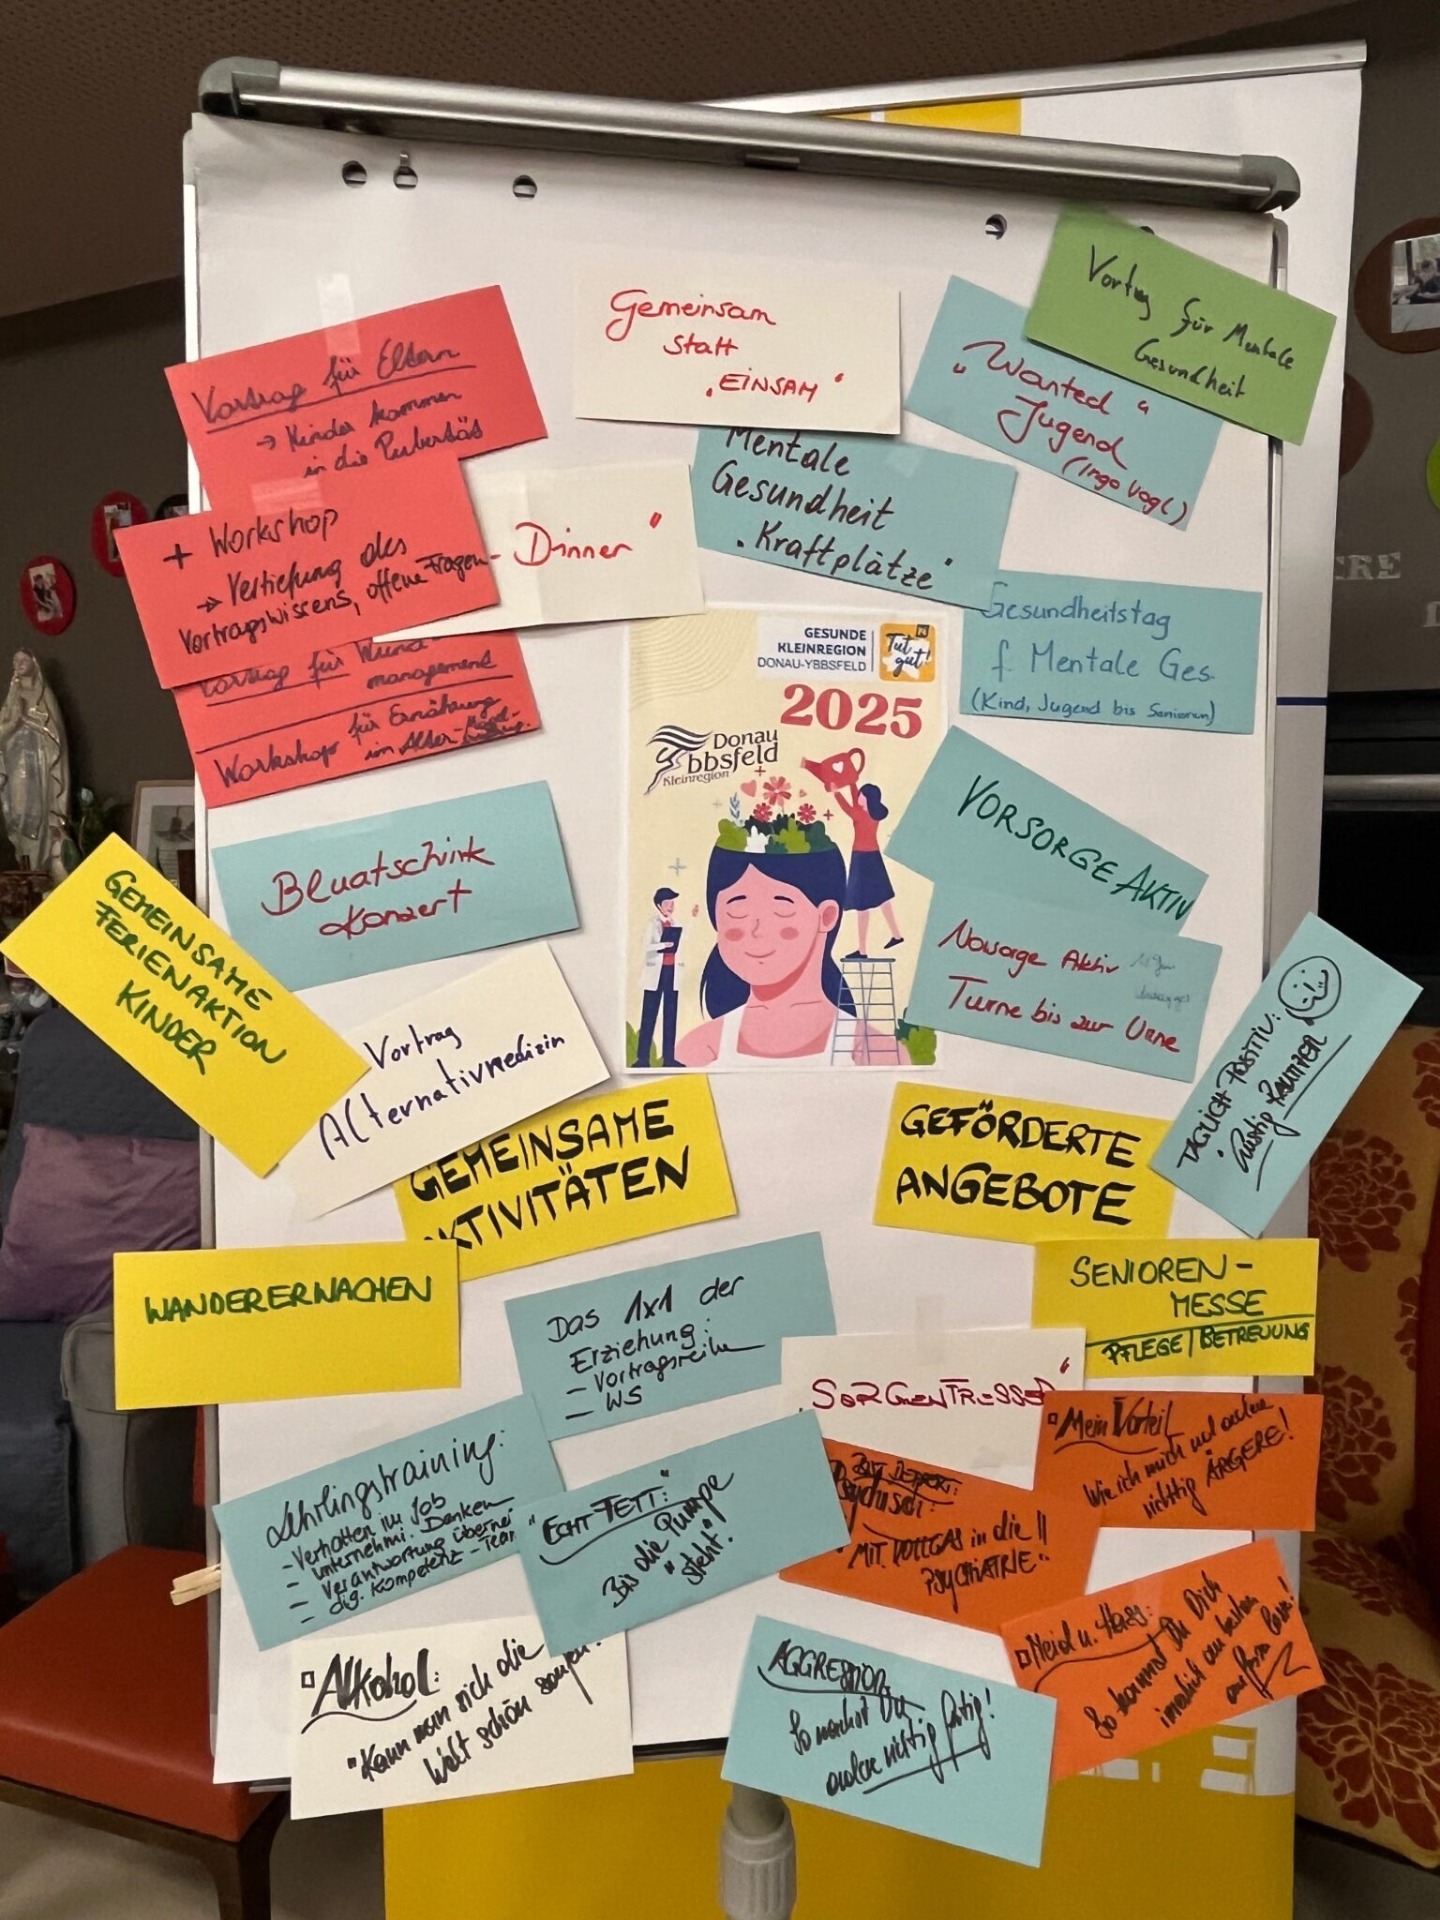 Vortrag für Eltern
→ Kinder kommen
in die Pubertät
+ Workshop
→ Vertiefung des
Vortragswissens, offene Fragen
Vortrag für Wund-
management
Workshop für Ernährung
im Alter
Gemeinsam
statt
"EINSAM"
- Dinner"
Mentale
Gesundheit
"Kraftplätze"
"Wanted"
Jugend
(Ingo Vogl)
Vortrag für Mentale
Gesundheit
Gesundheitstag
f. Mentale Ges.
(Kind, Jugend bis Senioren)
GESUNDE
KLEINREGION
DONAU-YBBSFELD
Tut
gut!
2025
Donau
Ybbsfeld
Kleinregion
VORSORGE AKTIV
Turne bis zur Urne
Bluatschink
Konzert
GEMEINSAME
FERIENAKTION
KINDER
Vortrag
Alternativmedizin
GEMEINSAME
AKTIVITÄTEN
GEFÖRDERTE
ANGEBOTE
TÄGLICH POSITIV:
WANDERERWACHEN
SENIOREN-
MESSE
PFLEGE/BETREUUNG
Das 1x1 der
Erziehung:
- Vortragsreihe
- WS
"SORGENFRESSER"
Mein Vorteil
Wie ich mich und andere
richtig ÄRGERE!
Lehrlingstraining:
- Verhalten im Job
- unternehm. Denken
- Verantwortung überne
- dig. Kompetenz - Team
"ECHT FETT:"
Bis die Pumpe
"steht"!
MIT VOLLGAS in die
PSYCHIATRIE"
Neid u. Hass:
So kommst Du Dich
Alkohol:
"Kann man sich die
Welt schön saufen?
AGGRESSION
So machst Du
andere richtig fertig!